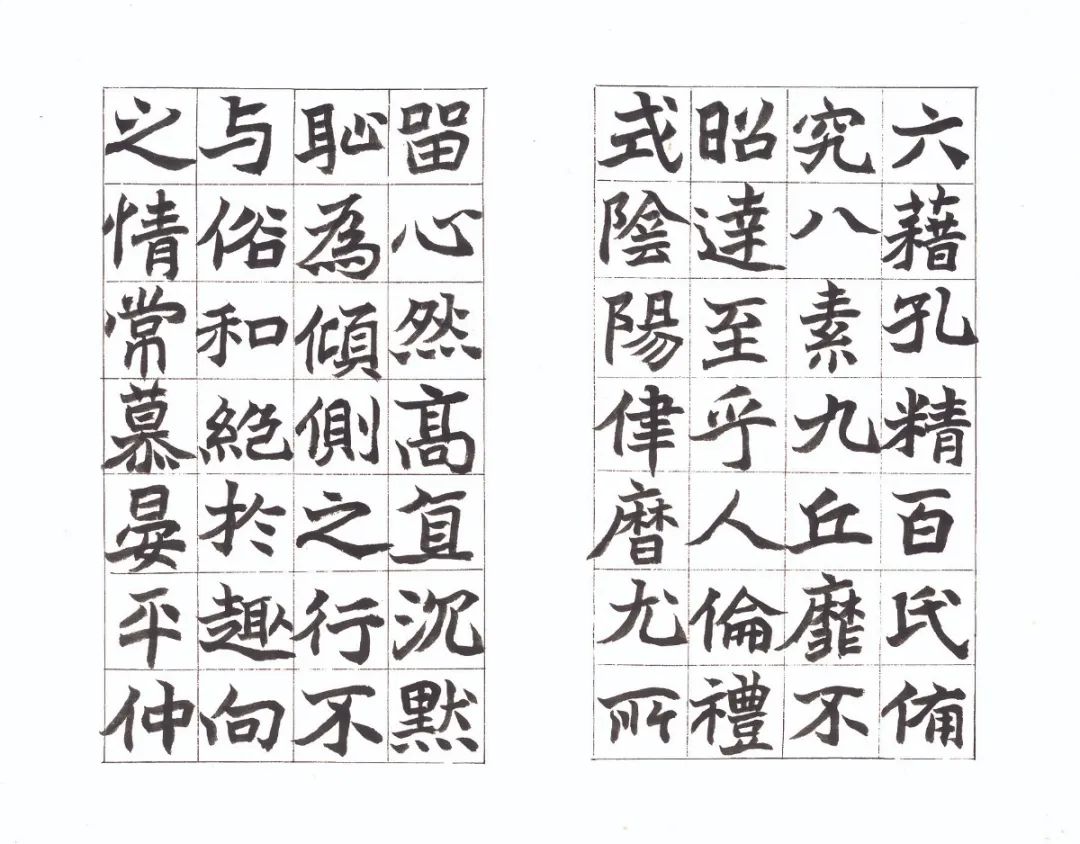 六藉孔精百氏俻
究八素九丘靡不
昭達至乎人倫禮
式陰陽律曆尤所
留心然高直沉默
恥為傾側之行不
与俗和絕於趣向
之情常慕晏平仲